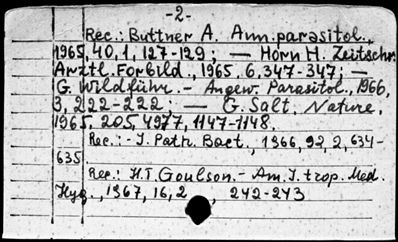 -2-
Rec.: Buttner A. Ann. parasitol.,
1965, 40, 1, 127-129; — Horn H. Zeitschr.
Arztl. Forbild., 1965, 6, 347-347; —
G. Wildführ. - Angew. Parasitol., 1966,
3, 222-222; — G. Salt, Nature,
1965, 205, 4977, 1147-1148.
Rec.: - J. Path. Bact., 1966, 92, 2, 634-
635
Rec.: H.T. Goulson. - Am. J. trop. Med.
Hyg., 1967, 16, 2, 242-243